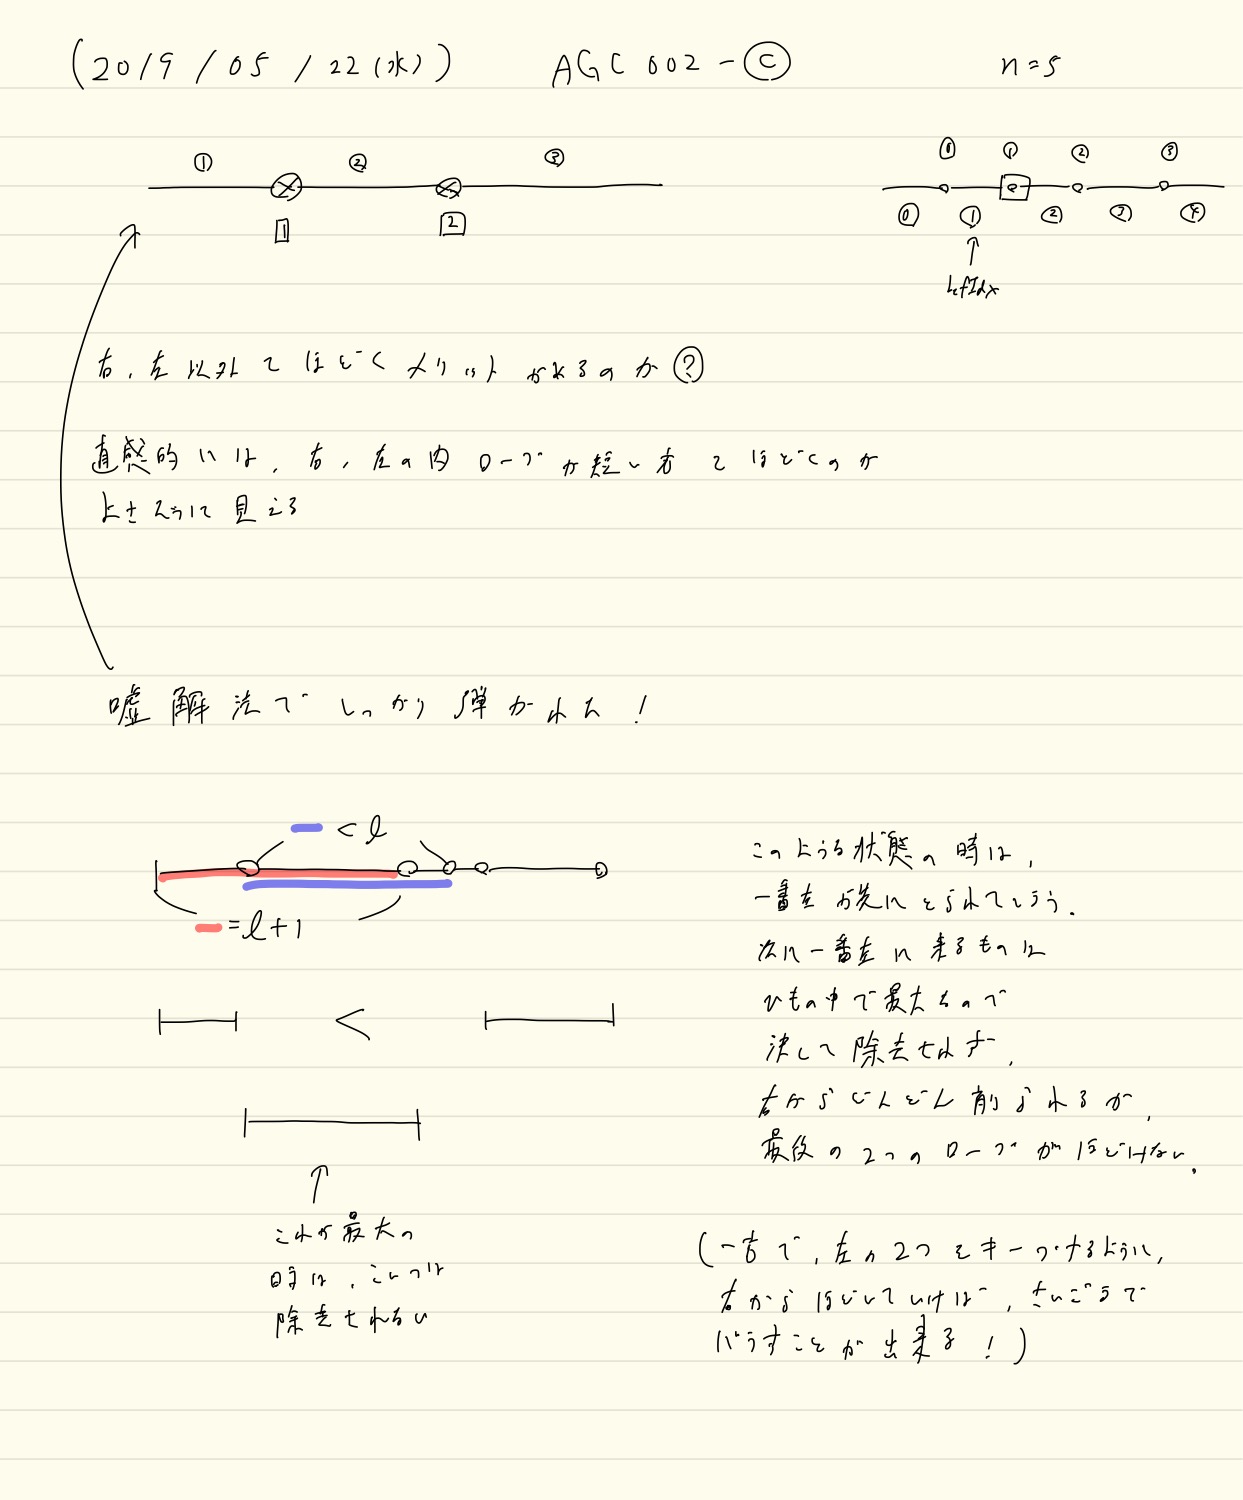 (2019/05/22(水)) AGC 002-Ⓒ n=5
① ② ③
1 2
⓪ ① ② ③
⓪ ① ② ③ ④
leftIdx
右、左以外でほどくメリットがあるのか?
直感的には、右、左の内ロープが短い方でほどくのが
よさそうに見える
嘘解法でしっかり弾かれた!
< l
= l+1
<
これが最大の
時は、こいつは
除去されない
このような状態の時は、
一番左が先にとられてしまう.
次に一番左に来るものは
ひもの中で最大なので
決して除去せれず、
右からどんどん削られるが、
最後の2つのロープがほどけない.
(一方で、左の2つをキープするように、
右からほどいていけば、さいごまで
バラすことが出来る!)